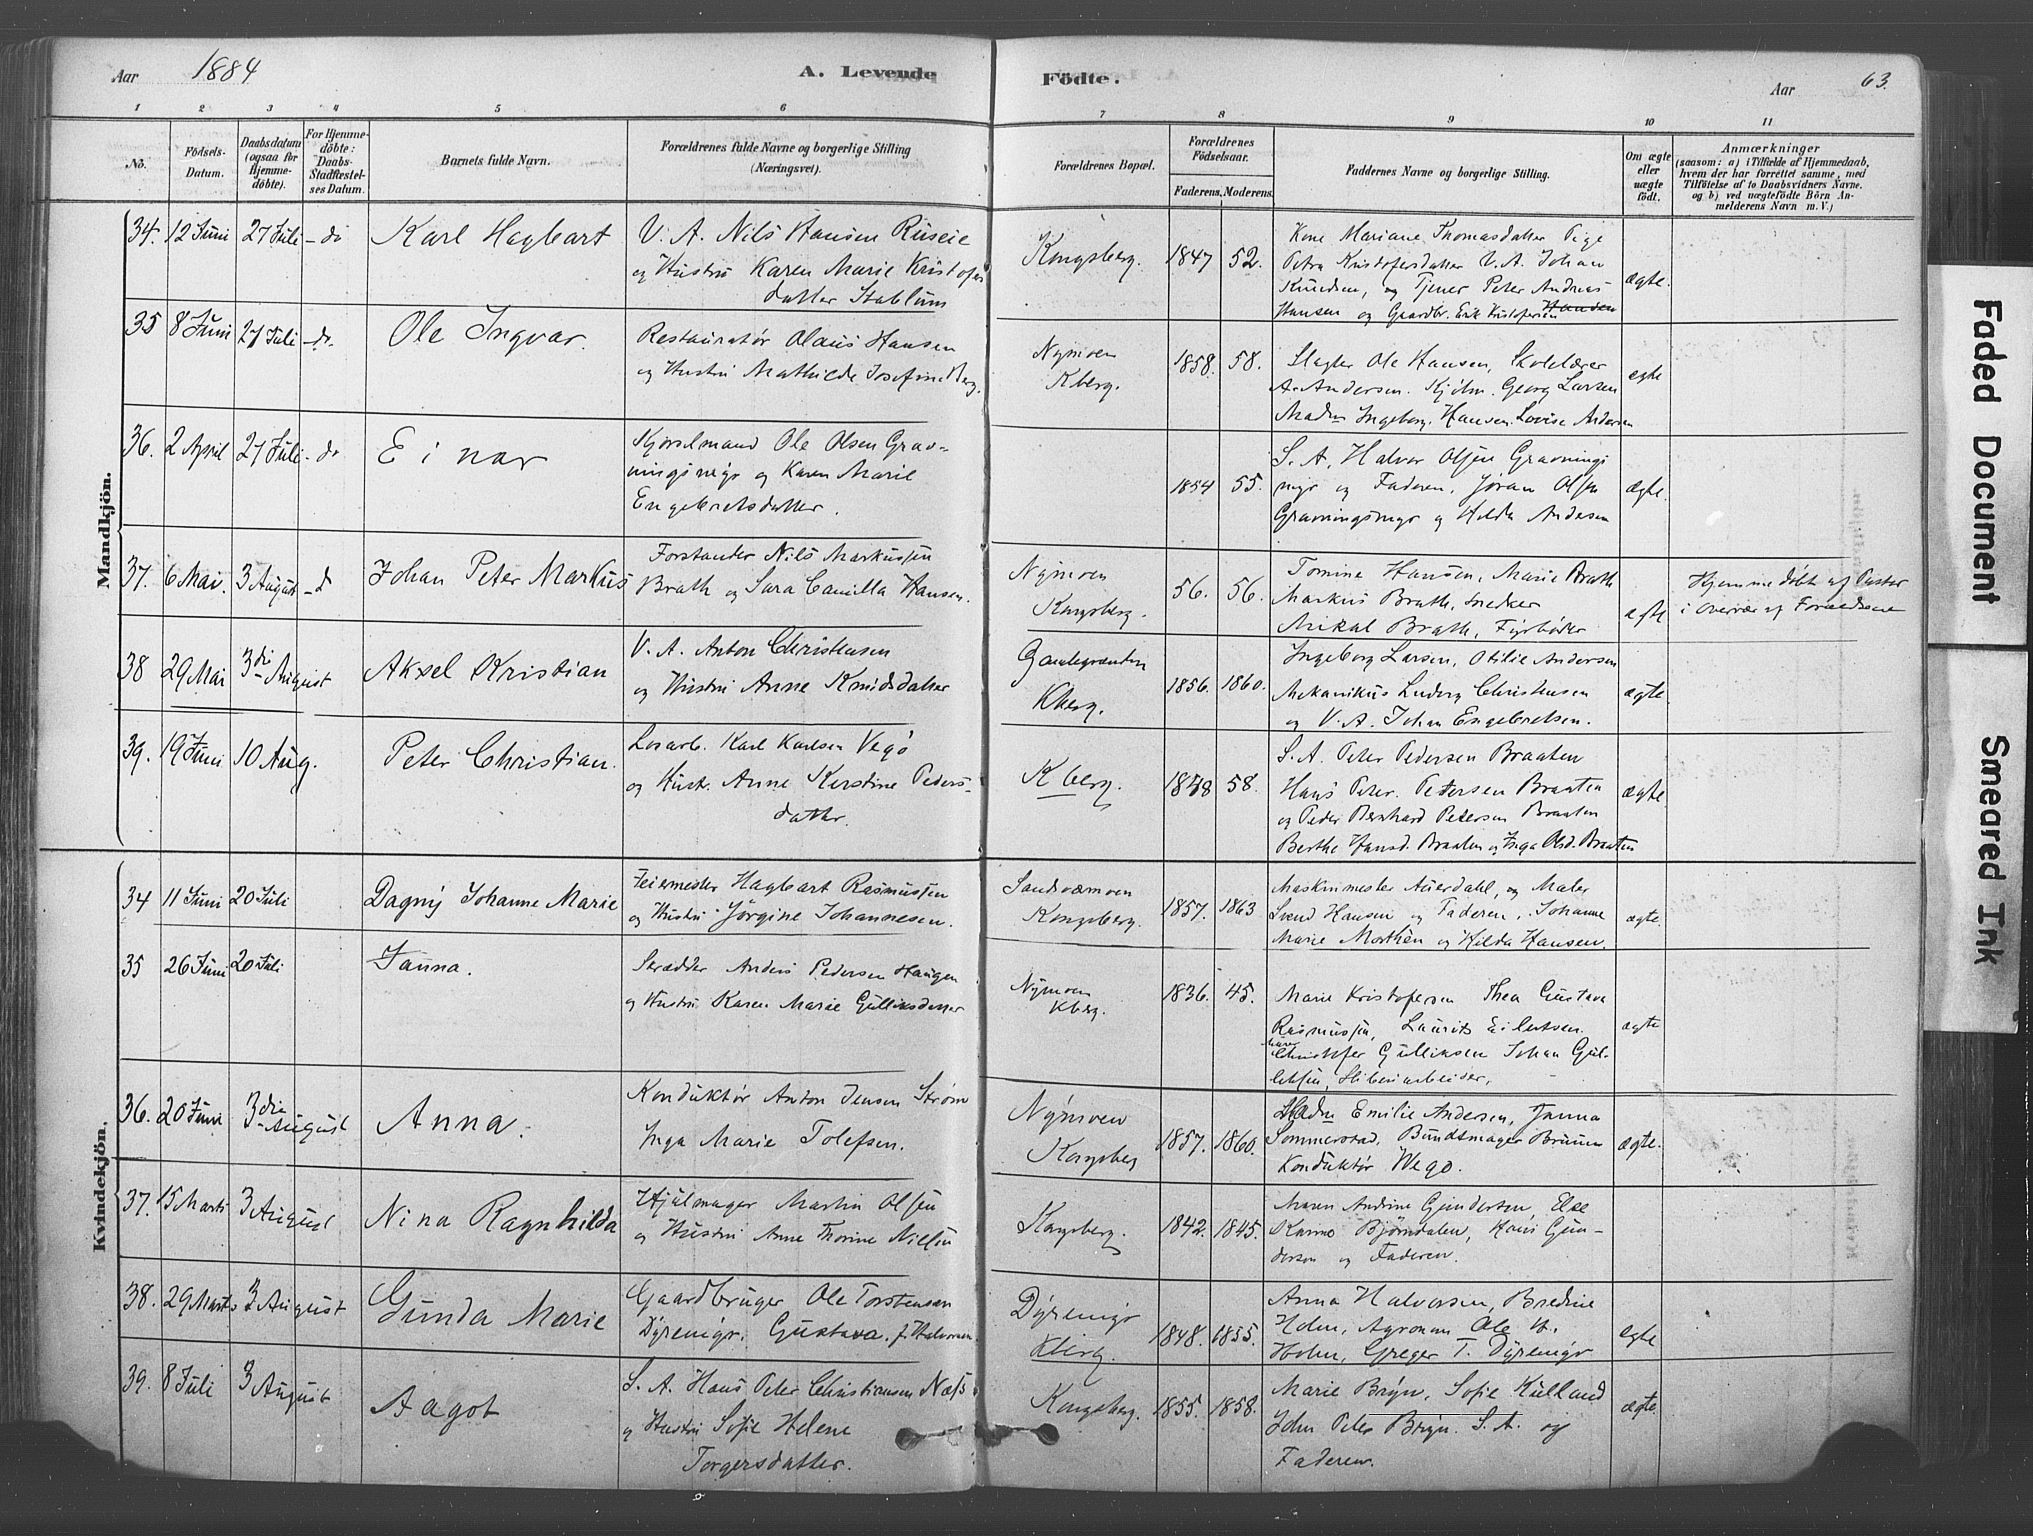 Aar 1884 A. Levende Födte. Aar 63.
1 2 3 4 5 6 7 8 9 10 11
No.
Födsels-Datum.
Daabsdatum (ogsaa for Hjemme-döbte).
For Hjemme-döbte: Daabs-Stadfæstel-ses Datum.
Barnets fulde Navn.
Forældrenes fulde Navne og borgerlige Stilling (Næringsvei).
Forældrenes Bopæl.
Forældrenes Födselsaar.
Faderens. Moderens.
Faddernes Navne og borgerlige Stilling.
Om ægte eller uægte födt.
Anmærkninger
(saasom: a) i Tilfælde af Hjemmedaab, hvem der har forrettet samme, med Tilföielse af to Daabsvidners Navne. og b) ved uægtefödte Börn An-melderens Navn m. V.)
Mandkjön.
34. 12 Juni 27 Juli - do Karl Hagbart
V. A. Nils Hansen Ruseie
og Hustru Karen Marie Kristofers
datter Stablum
Kongsberg. 1847 52.
Kone Mariane Thomasdatter Pige
Petra Kristofersdatter V. A. Johan
Knudsen, og Tjener Peter Andreas
Hansen og Gaardbr. Erik Kristofersen Hansen
ægte.
35 8 Juni 27 Juli - do. Ole Ingvar.
Restauratør Olaus Hansen
og Hustru Mathilde Josefine Berg.
Nymoen
Kberg.
1858. 58.
Slagter Ole Hansen, Skolelærer
A. Andersen. Kjøbm. Georg Larsen
Madm Ingeborg Hansen. Lovise Andersen
egte
36. 2 April 27 Juli - do Einar
Kjørselmand Ole Olsen Grav-
ningsmyr og Karen Marie
Engebretsdatter.
1854 55.
S. A. Halvor Olsen Gravnings
myr og Faderen, Jøran Olsen
Gravningsmyr og Hilda Andersen
ægte.
37. 6 Mai. 3 August - d Johan Peter Markus
Forstander Nils Markussen
Brath og Sara Camilla Hansen.
Nymoen
Kongsberg.
56. 56.
Tomine Hansen, Marie Brath
Markus Brath, snedker
Mikal Brath, Fyrbøder
egte
Hjemmedøbt af Pastor
i overvær af Forældrene
38 29 Mai 3die August Aksel Kristian
V. A. Anton Christensen
og Hustru Anne Knudsdatter
Gamlegrænden
Kberg.
1856. 1860.
Ingeborg Larsen, Otilie Andersen
Mekanikus Ludvig Christensen
og V. A. Johan Engebretsen.
ægte.
39. 19 Juni 10 Aug. Peter Christian.
Losarb. Karl Karlsen Vegø
og Hust. Anne Kerstine Peders-
datter.
Kberg.
1848 58.
S. A. Peter Pedersen Braaten
Hans Peter Petersen Braaten
og Peder Bernhard Petersen Braaten
Berthe Hansd. Braaten og Inga Olsd. Braaten
ægte.
Kvindekjön.
34 11 Juni 20 Juli Dagny Johanne Marie
Feiermester Hagbart Rasmussen
og Hustru Jørgine Johannesen.
Sandsværmoen
Kongsberg.
1857. 1863
Maskinmester Auerdahl, og Maler
Svend Hansen og Faderen. Johanne
Marie Morthen og Hilda Hansen.
ægte.
35 26 Juni 20 Juli Janna.
Skrædder Anders Pedersen Haugen
og Hustru Karen Marie Gulliksdatter
Nymoen
Kberg.
1836. 45.
Marie Kristofersen Thea Gustava
Rasmussen, Laurits Eilertsen.
Christofer Gulliksen Johan Gul-
liksen, Sliberiarbeider.
ægte
36. 20 Juni 3die August Anna.
Konduktør Anton Jensen Strøm
Inga Marie Tolefsen.
Nymoen
Kongsberg
1857. 1860.
Madm Emilie Andersen, Janna
Sommerstad, Bundtmager Bruun
Konduktør Wegø.
ægte.
37. 15 Marts 3 August Nina Ragnhilda
Hjulmager Martin Olsen
og Hustru Anne Thorine Nilsen
Kongsberg.
1842. 1845.
Maren Andrine Gundersen, Else
Karine Bjørndalen, Hans Gun-
dersen og Faderen.
38. 29 Marts 3 August Gunda Marie
Gaardbruger Ole Torstensen
Dyremyr. Gustava f. Halvorsen
Dyremyr
Kberg.
1848. 1855.
Anna Halvorsen, Bredine
Holm, Agronom Ole H.
Holm, Greger T. Dyremyr
egte
39. 8 Juli 3 August Aagot
S. A. Hans Peter Christiansen Næss
og Hustru Sofie Helene
Torgersdatter.
Kongsberg.
1855. 1858.
Marie Bryn, Sofie Kulland
John Peter Bryn. S. A. og
Faderen.
ægte.
Faded Document
Smeared Ink